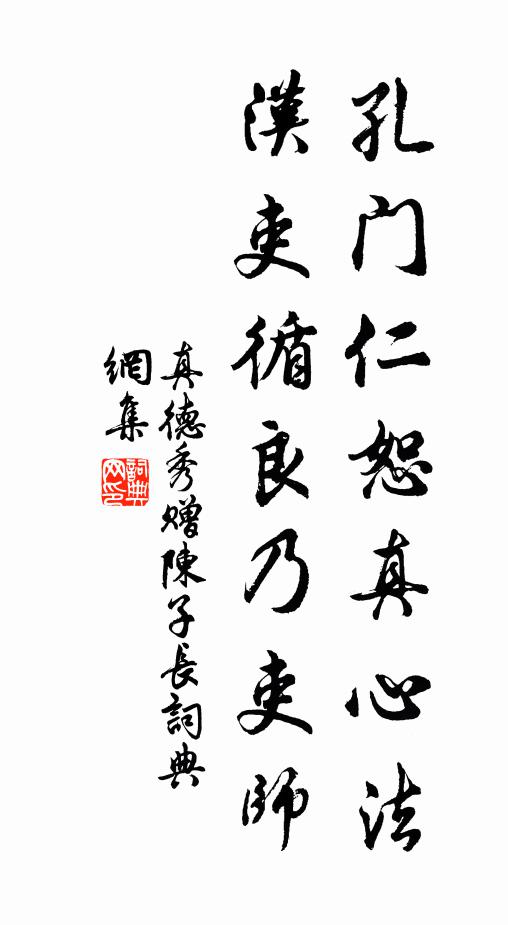 孔门仁恕真心法
漢吏循良乃吏師
真德秀赠陳子長詞典
網集
詞典
网印